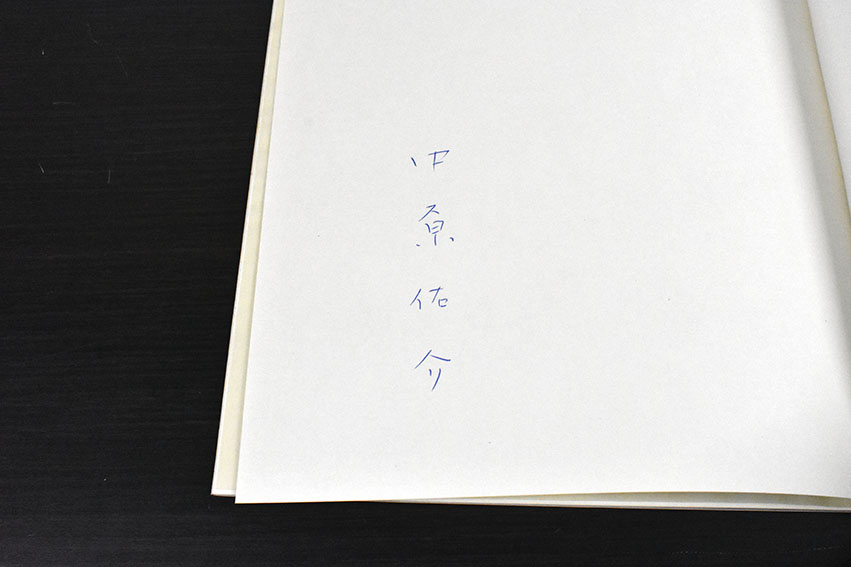 中原佑介